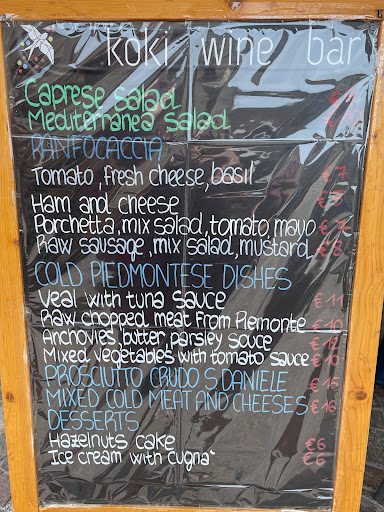 koki wine bar
Caprese salad
Mediterranea salad
PANFOCACCIA
Tomato, fresh cheese, basil €7
Ham and cheese
Porchetta, mix salad, tomato, mayo €7
Raw sausage, mix salad, mustard €8
COLD PIEDMONTESE DISHES
Veal with tuna sauce €11
Raw chopped meat from Piemonte €10
Anchovies, butter, parsley souce €12
Mixed vegetables with tomato sauce €10
PROSCIUTTO CRUDO S. DANIELE €15
MIXED COLD MEAT AND CHEESES €16
DESSERTS
Hazelnuts cake €6
Ice cream with Cugna` €6